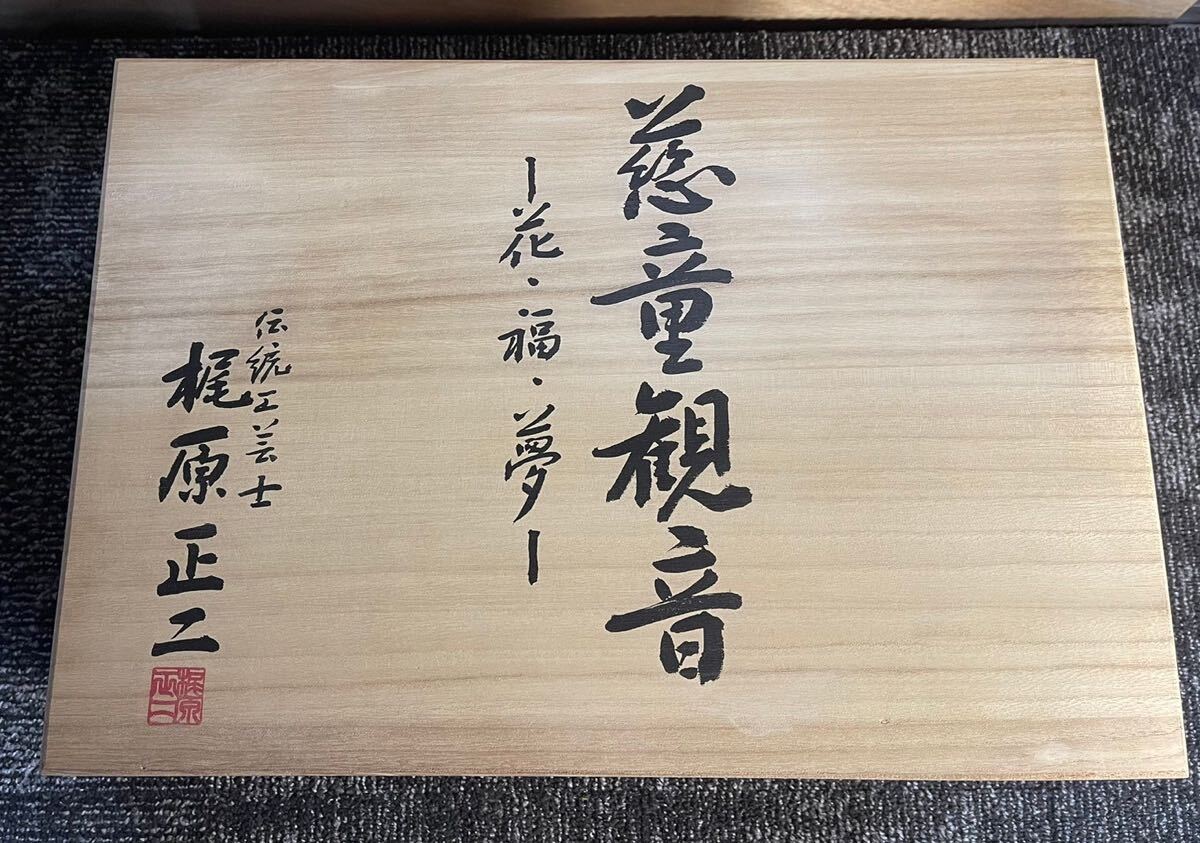 慈童観音
ー花・福・夢ー
伝統工芸士
梶原正二
梶原正二